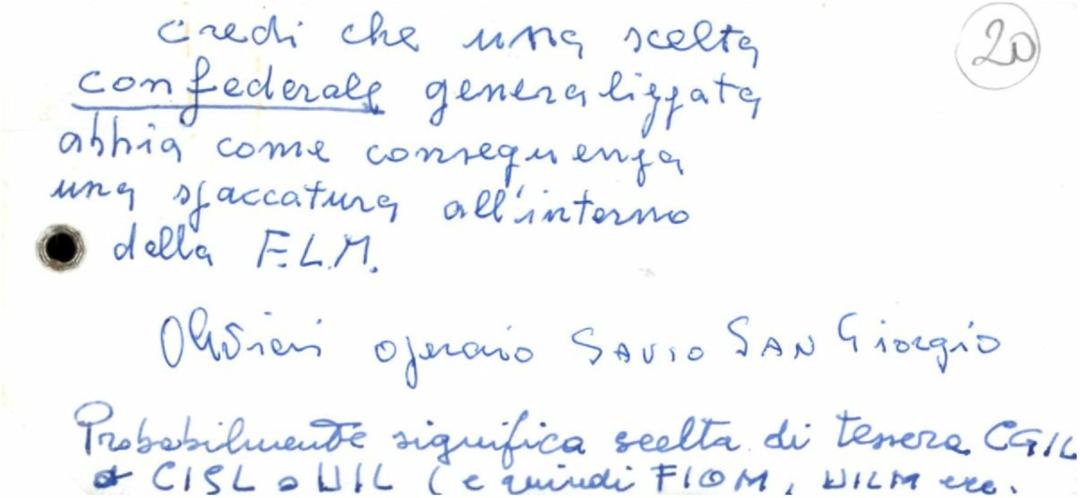 20
credi che una scelta
confederale generalizzata
abbia come conseguenza
una spaccatura all'interno
della F.L.M.
operaio SAVIO SAN Giorgio
Probabilmente significa scelta di tessera CGIL
CISL o UIL (e quindi FIOM, UILM ecc.